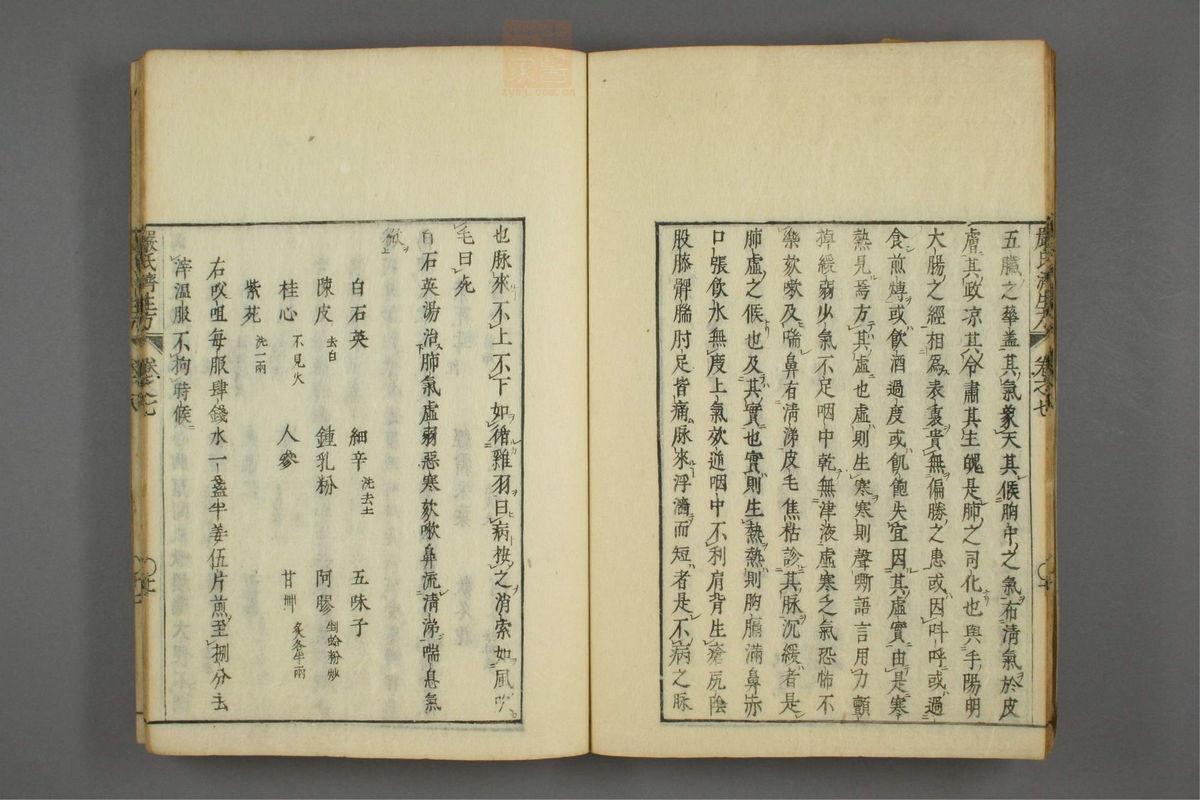 五臟之華盖其氣象天其候胷中之氣布清氣於皮
膚其政凉其令肅其生魄是肺之司化也與手陽明
大腸之經相爲表裏貴無偏勝之患或因呌呼或過
食煎煿或飲酒過度或飢飽失宜因其虛實由是寒
熱見焉方其虛也虛則生寒寒則聲嘶語言用力顫
掉緩弱少氣不足咽中乾無津液虛寒之氣恐怖不
樂欬嗽及喘鼻有清涕皮毛焦枯診其脉沉緩者是
肺虛之候也及其實也實則生熱熱則胷膈滿鼻赤
口張飲水無度上氣欬逆咽中不利肩背生瘡尻陰
股膝髀腨胻足皆痛脉來浮濇而短者是不病之脉
也脉來不上不下如循雞羽曰病按之消索如風吹
毛曰死
白石英湯治肺氣虛弱惡寒欬嗽鼻流清涕喘息氣
微
白石英 細辛洗去土 五味子
陳皮去白 鍾乳粉 阿膠剉蛤粉炒
桂心不見火 人參 甘艸炙各半兩
紫苑洗一兩
右㕮咀每服肆錢水一盞半姜伍片煎至捌分去
滓温服不拘時候
嚴氏濟生方 卷之七